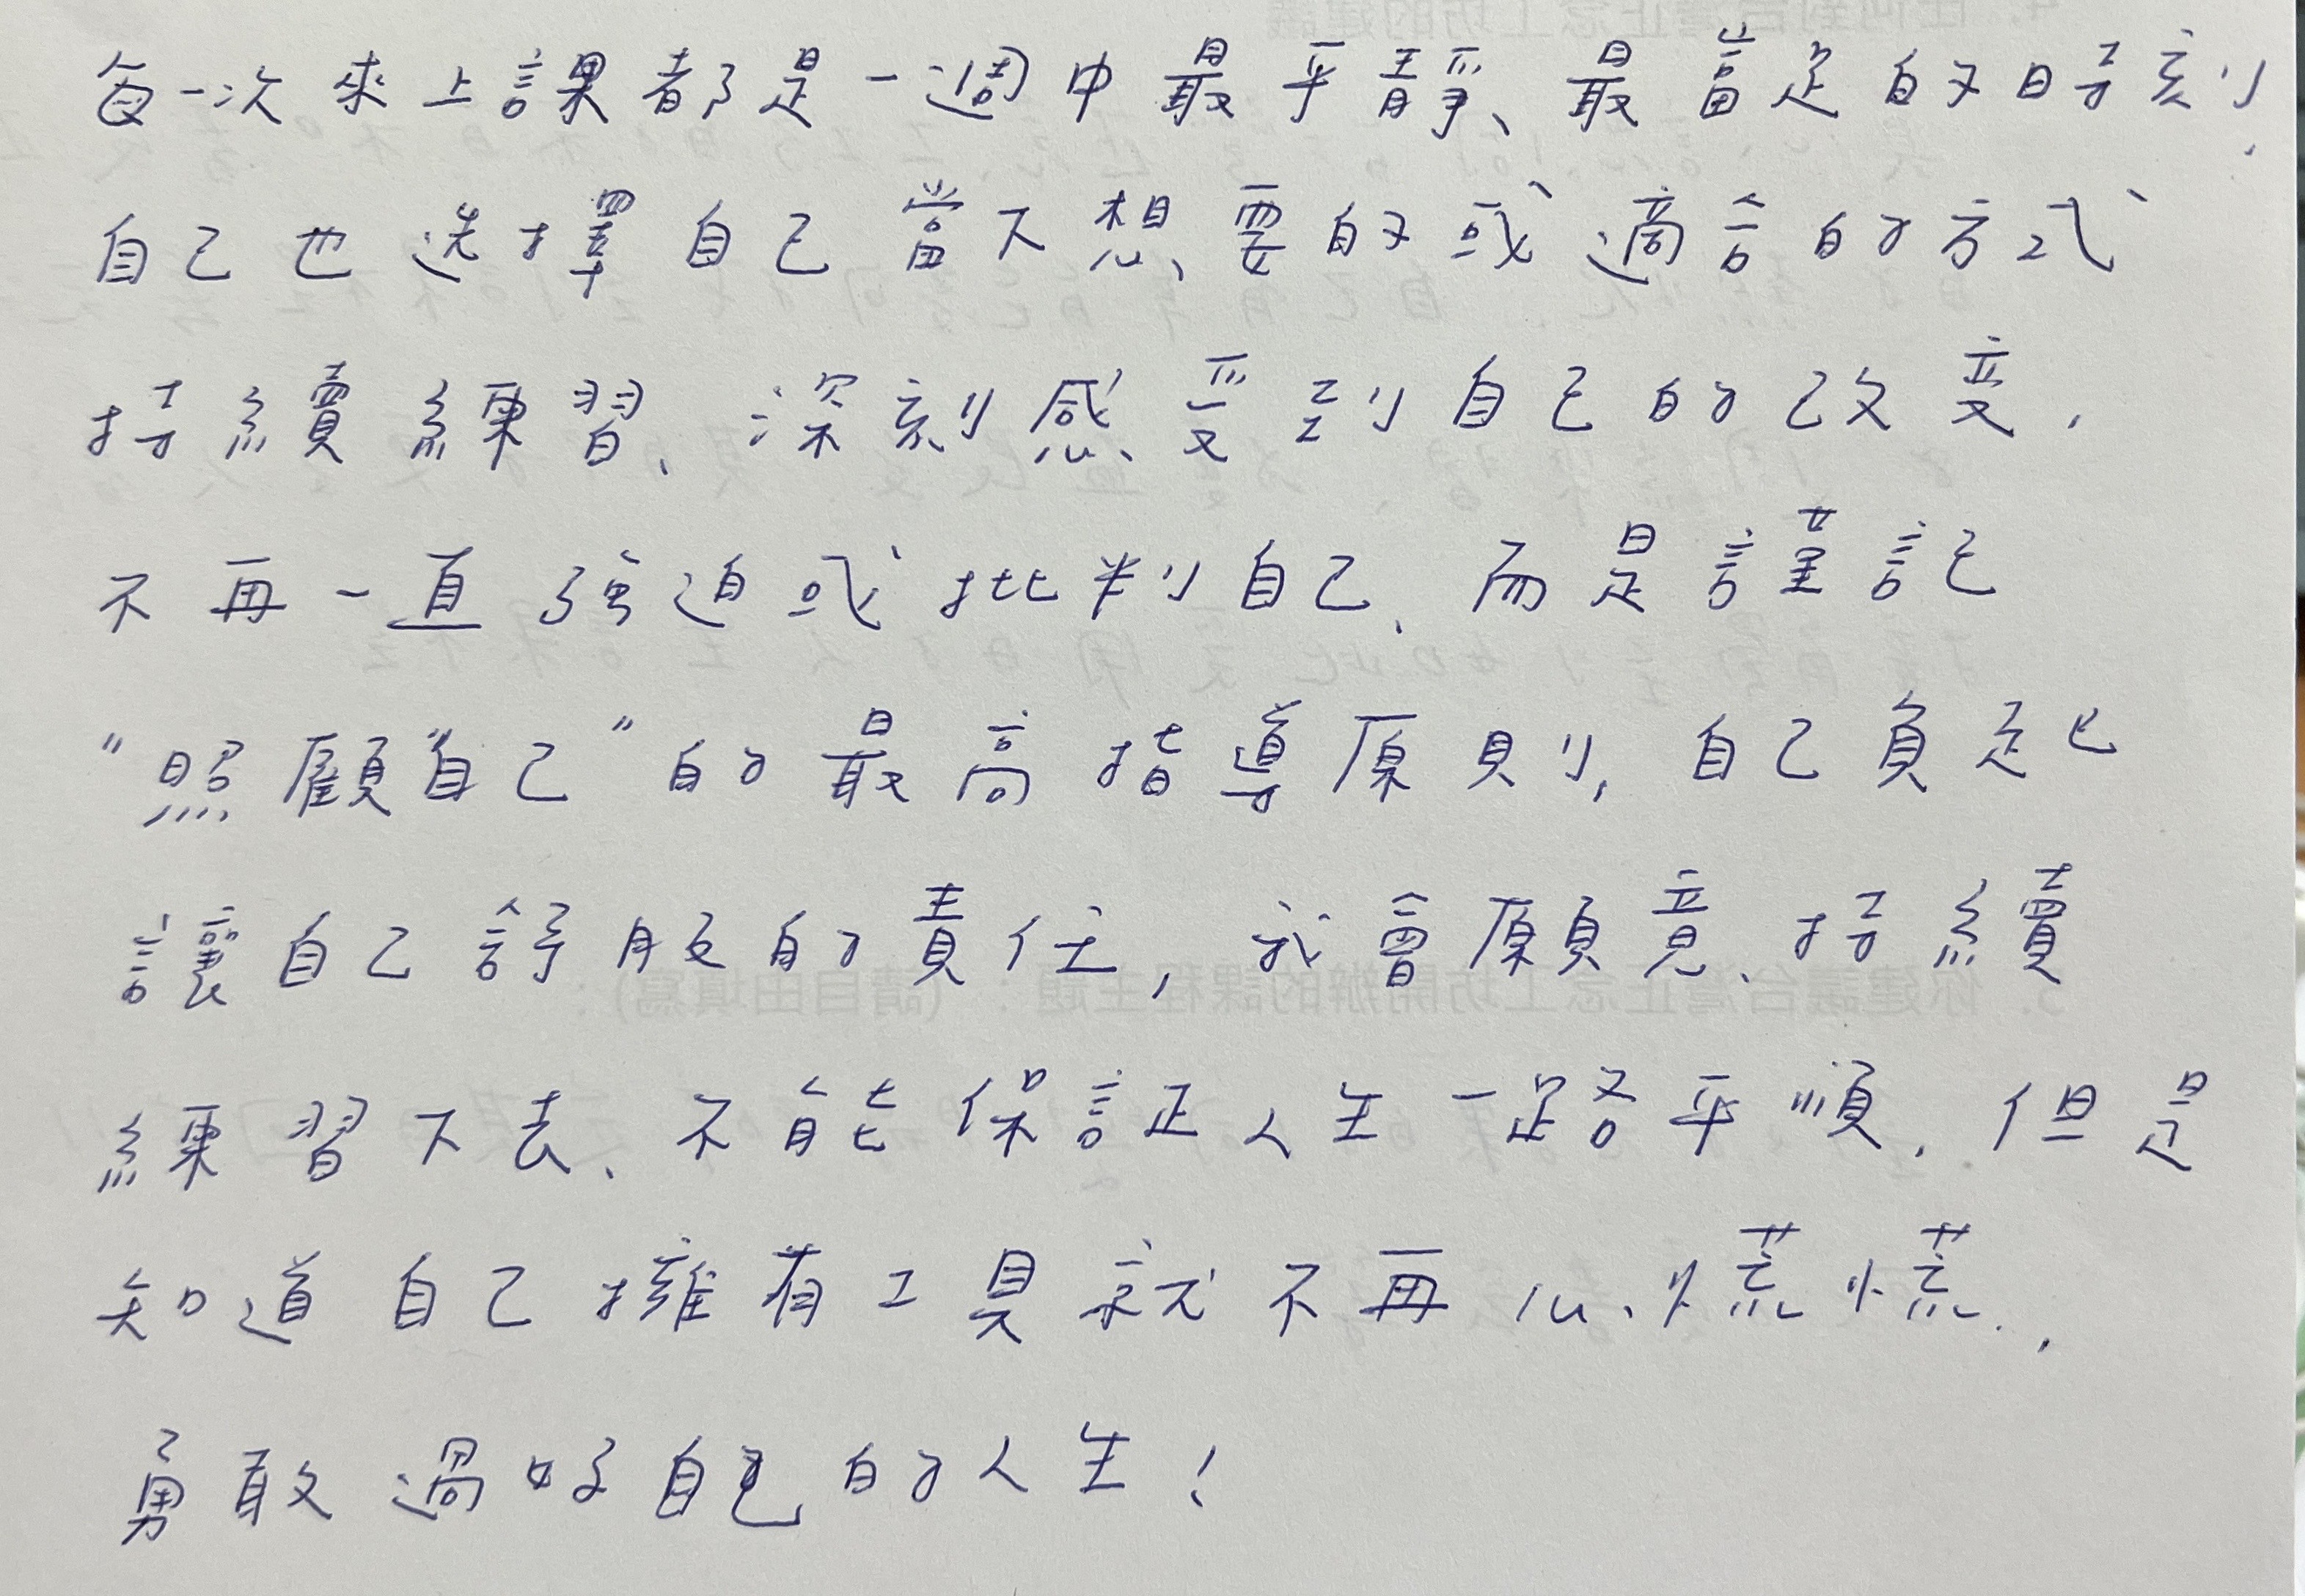 每一次來上課都是一週中最平靜、最富足的時刻,
自己也選擇自己當下想要的或適合的方式
持續練習、深刻感受到自己的改變,
不再一直強迫或批判自己、而是謹記
"照顧自己"的最高指導原則,自己負起
讓自己舒服的責任,我會願意、持續
練習下去、不能保証人生一路平順,但是
知道自己擁有工具就不再心慌慌,
勇敢過好自己的人生!
5. 你建議台灣正念工坊開辦的課程主題:(請自由填寫):